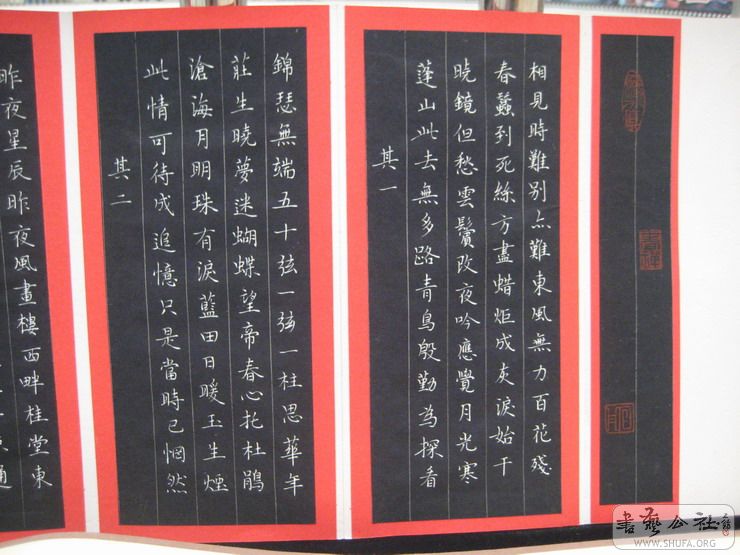 相見時難別亦難東風無力百花殘
春蠶到死絲方盡蜡炬成灰淚始干
曉鏡但愁雲鬢改夜吟應覺月光寒
蓬山此去無多路青鳥殷勤為探看
其一
錦瑟無端五十弦一弦一柱思華年
莊生曉夢迷蝴蝶望帝春心托杜鵑
滄海月明珠有淚藍田日暖玉生煙
此情可待成追憶只是當時已惘然
其二
昨夜星辰昨夜風畫樓西畔桂堂東
通
書藝公社
WWW.SHUFA.ORG